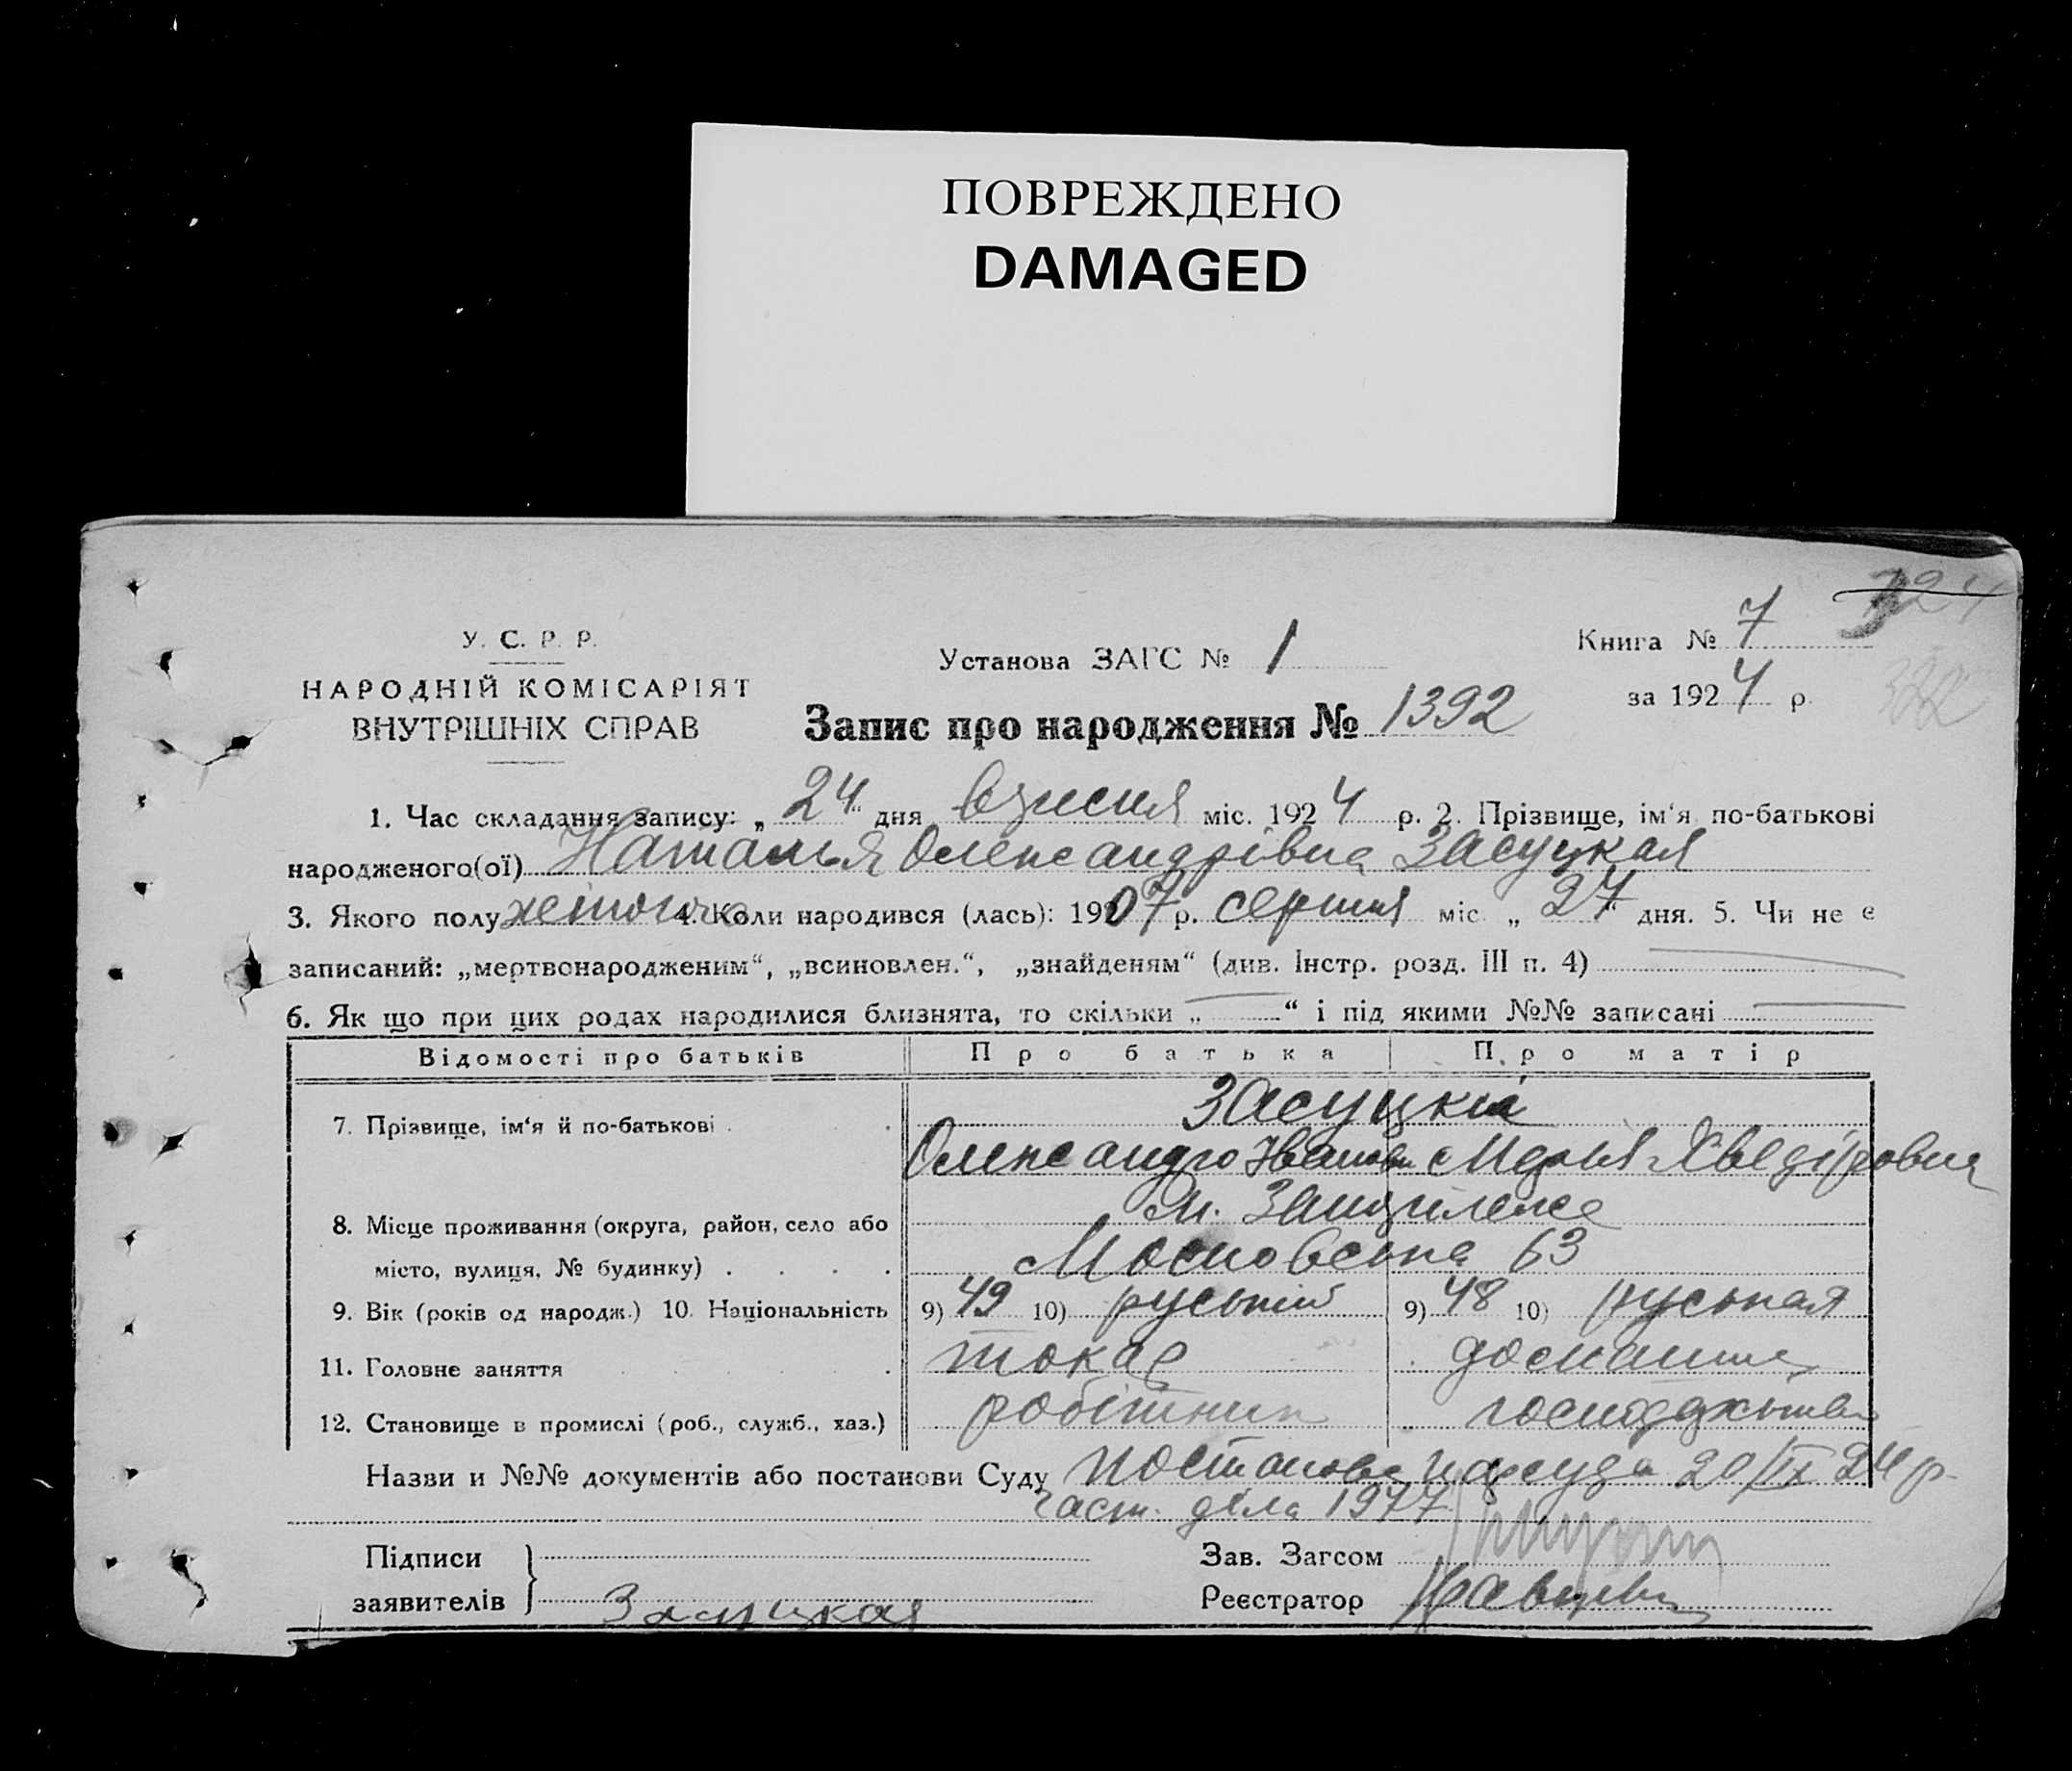 ПОВРЕЖДЕНО
DAMAGED
У. С. Р. Р.
НАРОДНІЙ КОМІСАРІЯТ
ВНУТРІШНІХ СПРАВ
Установа ЗАГС № 1
Книга № 7
за 1924 р.
Запис про народження № 1392
1. Час складання запису: „24“ дня вэресня міс. 1924 р. 2. Прізвище, ім‘я по-батькові
народженого(ої) Наталья Олександрівна Засуцкая
3. Якого полу жіночо 4. Коли народився (лась): 1907 р. серпня міс „27“ дня. 5. Чи не є
записаний: „мертвонародженим“, „всиновлен.“, „знайденям“ (див. Інстр. розд. III п. 4)
6. Як що при цих родах народилися близнята, то скільки „ “ і під якими №№ записані
Відомості про батьків Про батька Про матір
Засуцкій
7. Прізвище, ім‘я й по-батькові
Олександро Иванов Марія Хведіровна
м.
8. Місце проживання (округа, район, село або
місто, вулиця, № будинку) Московська 63
9. Вік (років од народж.) 10. Національність 9) 49 10) руський 9) 48 10) руськая
11. Головне заняття токар домашне
12. Становище в промислі (роб., служб., хаз.) робітник господарства
Назви и №№ документів або постанови Суду постанова нарсуда 20/IX 24 р.
част. діла 1977
Підписи
заявителів Засуцкая
Зав. Загсом
Реєстратор